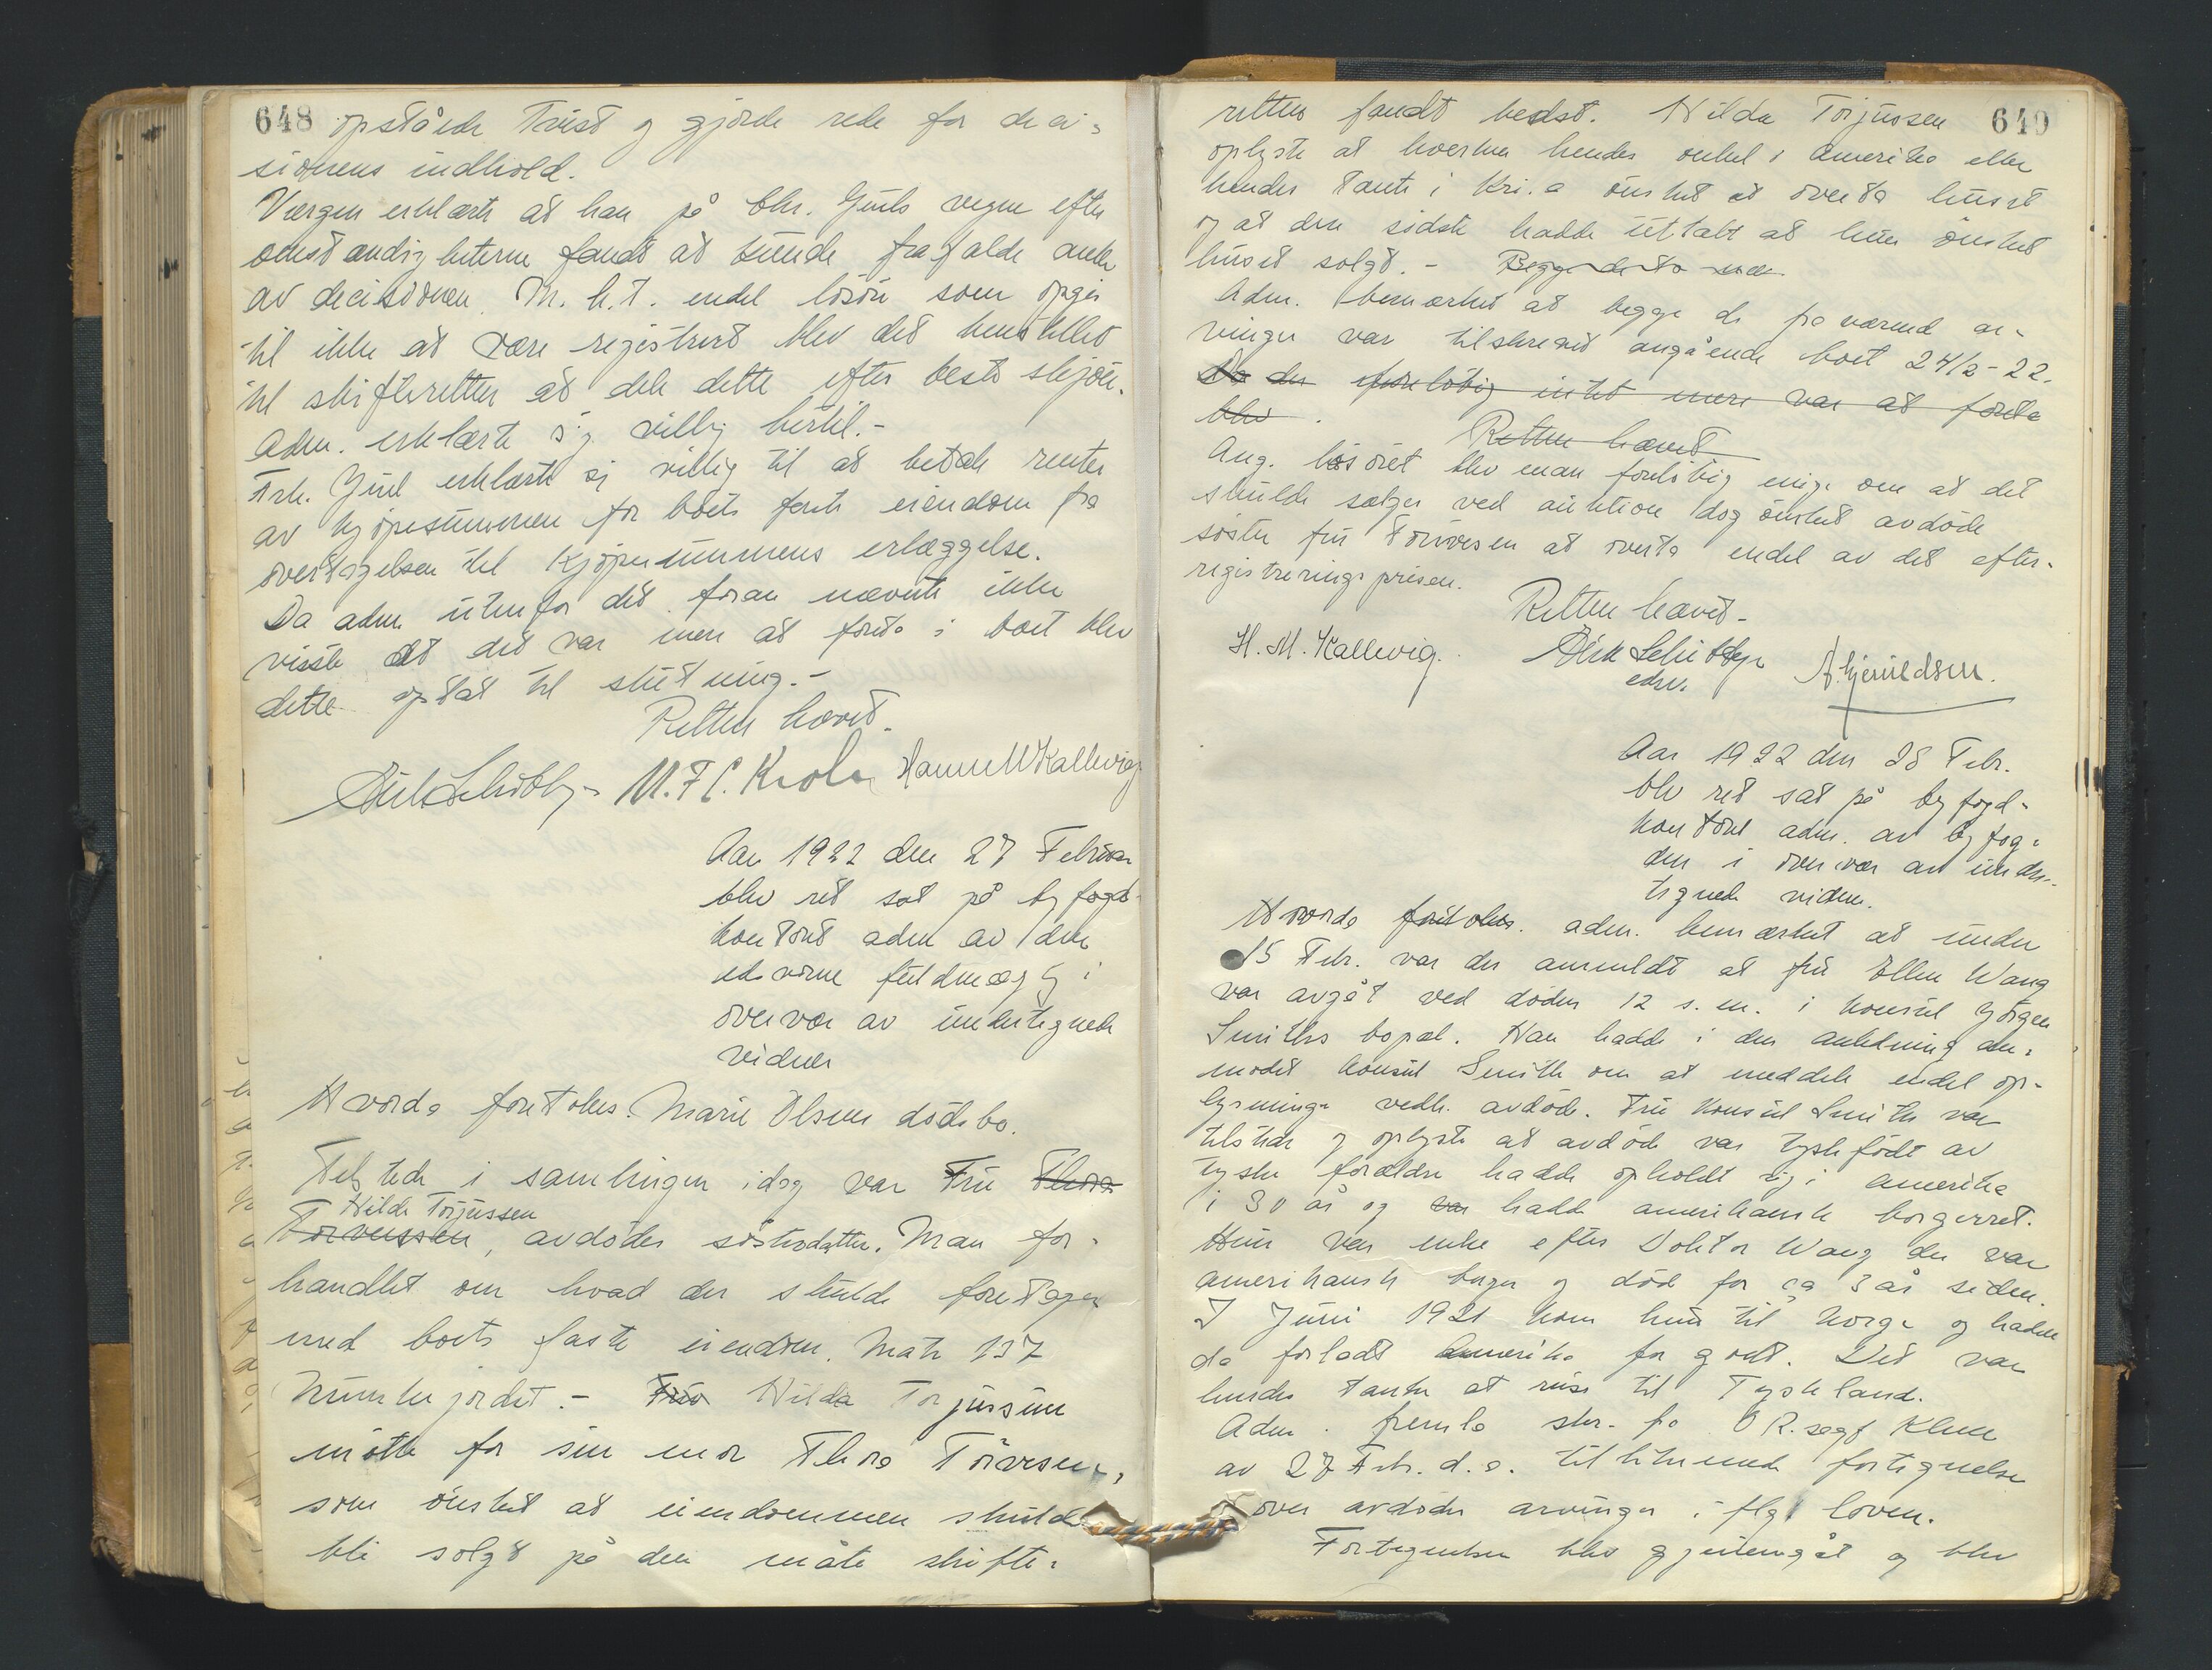 648 opståede Tvist og gjorde rede for deci-
sionens indhold.
Værgen erklærte at han på bhr. Juels vegne efter
omstændigheterne fandt at kunde frafalde anke
av decisionen. M. h. t. endel lösöre som opgis
til ikke at være registrert blev det henstillet
til skifteretten at dele dette efter beste skjön.
Adm. erklærte sig villig hertil.-
Frk. Juel erklærte sig villig til at betale renter
av kjöpesummen for boets faste eiendom fra
overtagelsen til kjöpesummens erlæggelse.
Da adm. utenfor det foran nævnte ikke
visste at det var mere at foreta i boet blev
dette optat til slutning.-
Retten hævet.
M. F. C. Hanne M Kallevig
Aar 1922 den 27 Februar
blev ret sat på byfogd-
kontoret adm av den
edsvorne fuldmægtig i
overvær av undertegnede
vidner
Hvorda foretokes. Marie Olsens dödsbo.
Tilstede i samlingen idag var Fru Thora
Hilda Torjussen
Torvessen, avdödes söstersdatter. Man for-
handlet om hvad der skulde foretages
med boets faste eiendom. Matr 137
Munkejordet.- Frk Hilda Torjussen
mötte for sin mor Thora Törresen,
som önsket at eiendommen skulde
bli solgt på den måte skifte-
649
retten fandt bedst. Hilda Torjussen
oplyste at hverken hendes onkel i Amerika eller
hendes tante i Kri.a önsket at overta huset
og at den sidste hadde uttalt at hun önsket
huset solgt.- Begge de to
Adm. bemærket at begge de fraværend ar-
vinger var tilskrevet angående boet 24/2-22.
Da der foreløbig intet mere var at foreta
blev.
Retten hævet
Ang. lösöret blev man foreløbig enige om at det
skulde sælges ved auktion dog önsket avdöde
söster fru Törresen at overta endel av det efter
registreringsprisen.
Retten hævet-
H. M. Kallevig. edsv. A. Gjeruldsen.
Aar 1922 den 28 Febr.
blev ret sat på byfogd-
kontoret adm. av byfog-
den i overvær av under-
tegnede vidner.
Hvorda foretokes. adm. bemærket at under
15 Febr. var der anmeldt at fru Ellen Wang
var avgåt ved döden 12 s. m. i Konsul Jörgen
Smiths bopæl. Han hadde i den anledning an-
modet konsul Smith om at meddele endel op-
lysninger vedk. avdöde. Fru Konsul Smith var
tilstede og oplyste at avdöde var tyskfödt av
tyske forældre hadde opholdt sig i Amerika
i 30 år og var hadde amerikansk borgerret.
Hun var enke efter Doktor Wang der var
amerikansk borger og död for ca 3 år siden.
I Juni 1921 kom hun til Norge og hadde
da forladt Amerika for godt. Det var
hendes tanke at reise til Tyskland.
Adm. fremla skr. fra O.R.sagf Klem
av 27 Febr. d. å. tillikemed fortegnelse
over avdödes arvinger iflg. loven.
Fortegnelsen blev gjennemgåt og blev